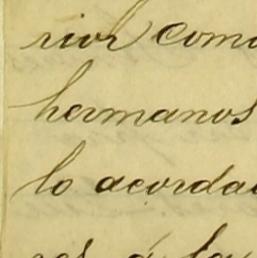 rior como
hermanos
lo acorda